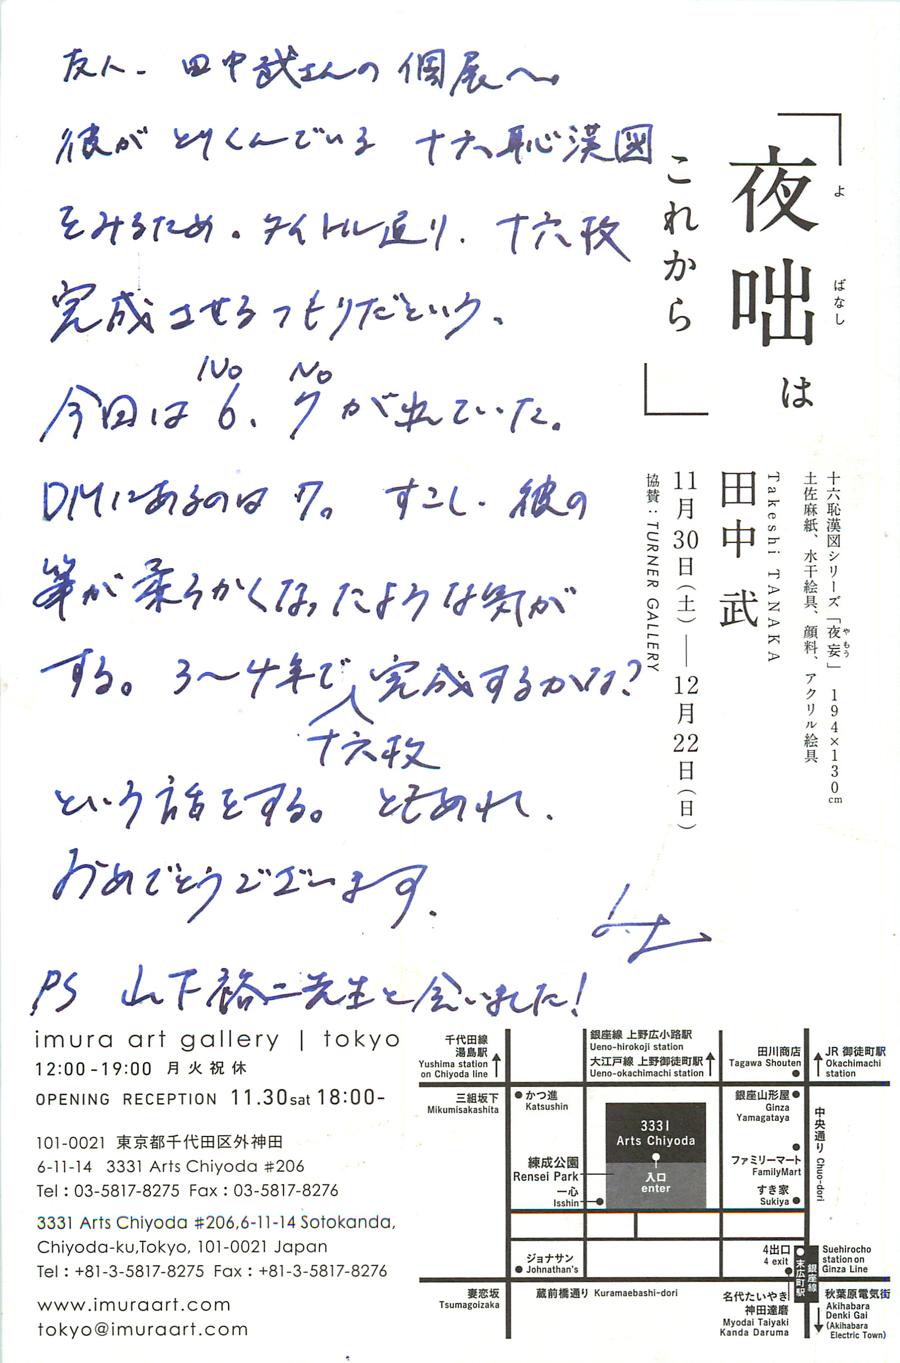 友人、田中武さんの個展へ。
彼がとりくんでいる 十六恥漢図
をみるため。タイトル通り、十六枚
完成させるつもりだという。
No No
今回は6、7が出ていた。
DMにあるのは7。すこし、彼の
筆が柔らかくなったような気が
する。3〜4年で完成するかな?
十六枚
という話をする。ともあれ、
おめでとうございます。
PS 山下裕二先生と会いました!
「夜咄は
よ ばなし
これから」
十六恥漢図シリーズ「夜妄」 194×130cm
やもう
土佐麻紙、水干絵具、顔料、アクリル絵具
Takeshi TANAKA
田中 武
11月30日(土)―12月22日(日)
協賛:TURNER GALLERY
imura art gallery | tokyo
12:00-19:00 月火祝休
OPENING RECEPTION 11.30sat 18:00-
101-0021 東京都千代田区外神田
6-11-14 3331 Arts Chiyoda #206
Tel : 03-5817-8275 Fax : 03-5817-8276
3331 Arts Chiyoda #206,6-11-14 Sotokanda,
Chiyoda-ku,Tokyo, 101-0021 Japan
Tel : +81-3-5817-8275 Fax : +81-3-5817-8276
www.imuraart.com
tokyo@imuraart.com
千代田線
湯島駅
Yushima station
on Chiyoda line
銀座線 上野広小路駅
Ueno-hirokoji station
大江戸線 上野御徒町駅
Ueno-okachimachi station
田川商店
Tagawa Shouten
JR 御徒町駅
Okachimachi
station
三組坂下
Mikumisakashita
かつ進
Katsushin
3331
Arts Chiyoda
入口
enter
銀座山形屋
Ginza
Yamagataya
中央通り Chuo-dori
練成公園
Rensei Park
一心
Isshin
ファミリーマート
FamilyMart
すき家
Sukiya
ジョナサン
Johnathan's
4出口
4 exit
末広町駅
銀座線
Suehirocho
station on
Ginza Line
妻恋坂
Tsumagoizaka
蔵前橋通り Kuramaebashi-dori
名代たいやき
神田達磨
Myodai Taiyaki
Kanda Daruma
秋葉原電気街
Akihabara
Denki Gai
(Akihabara
Electric Town)